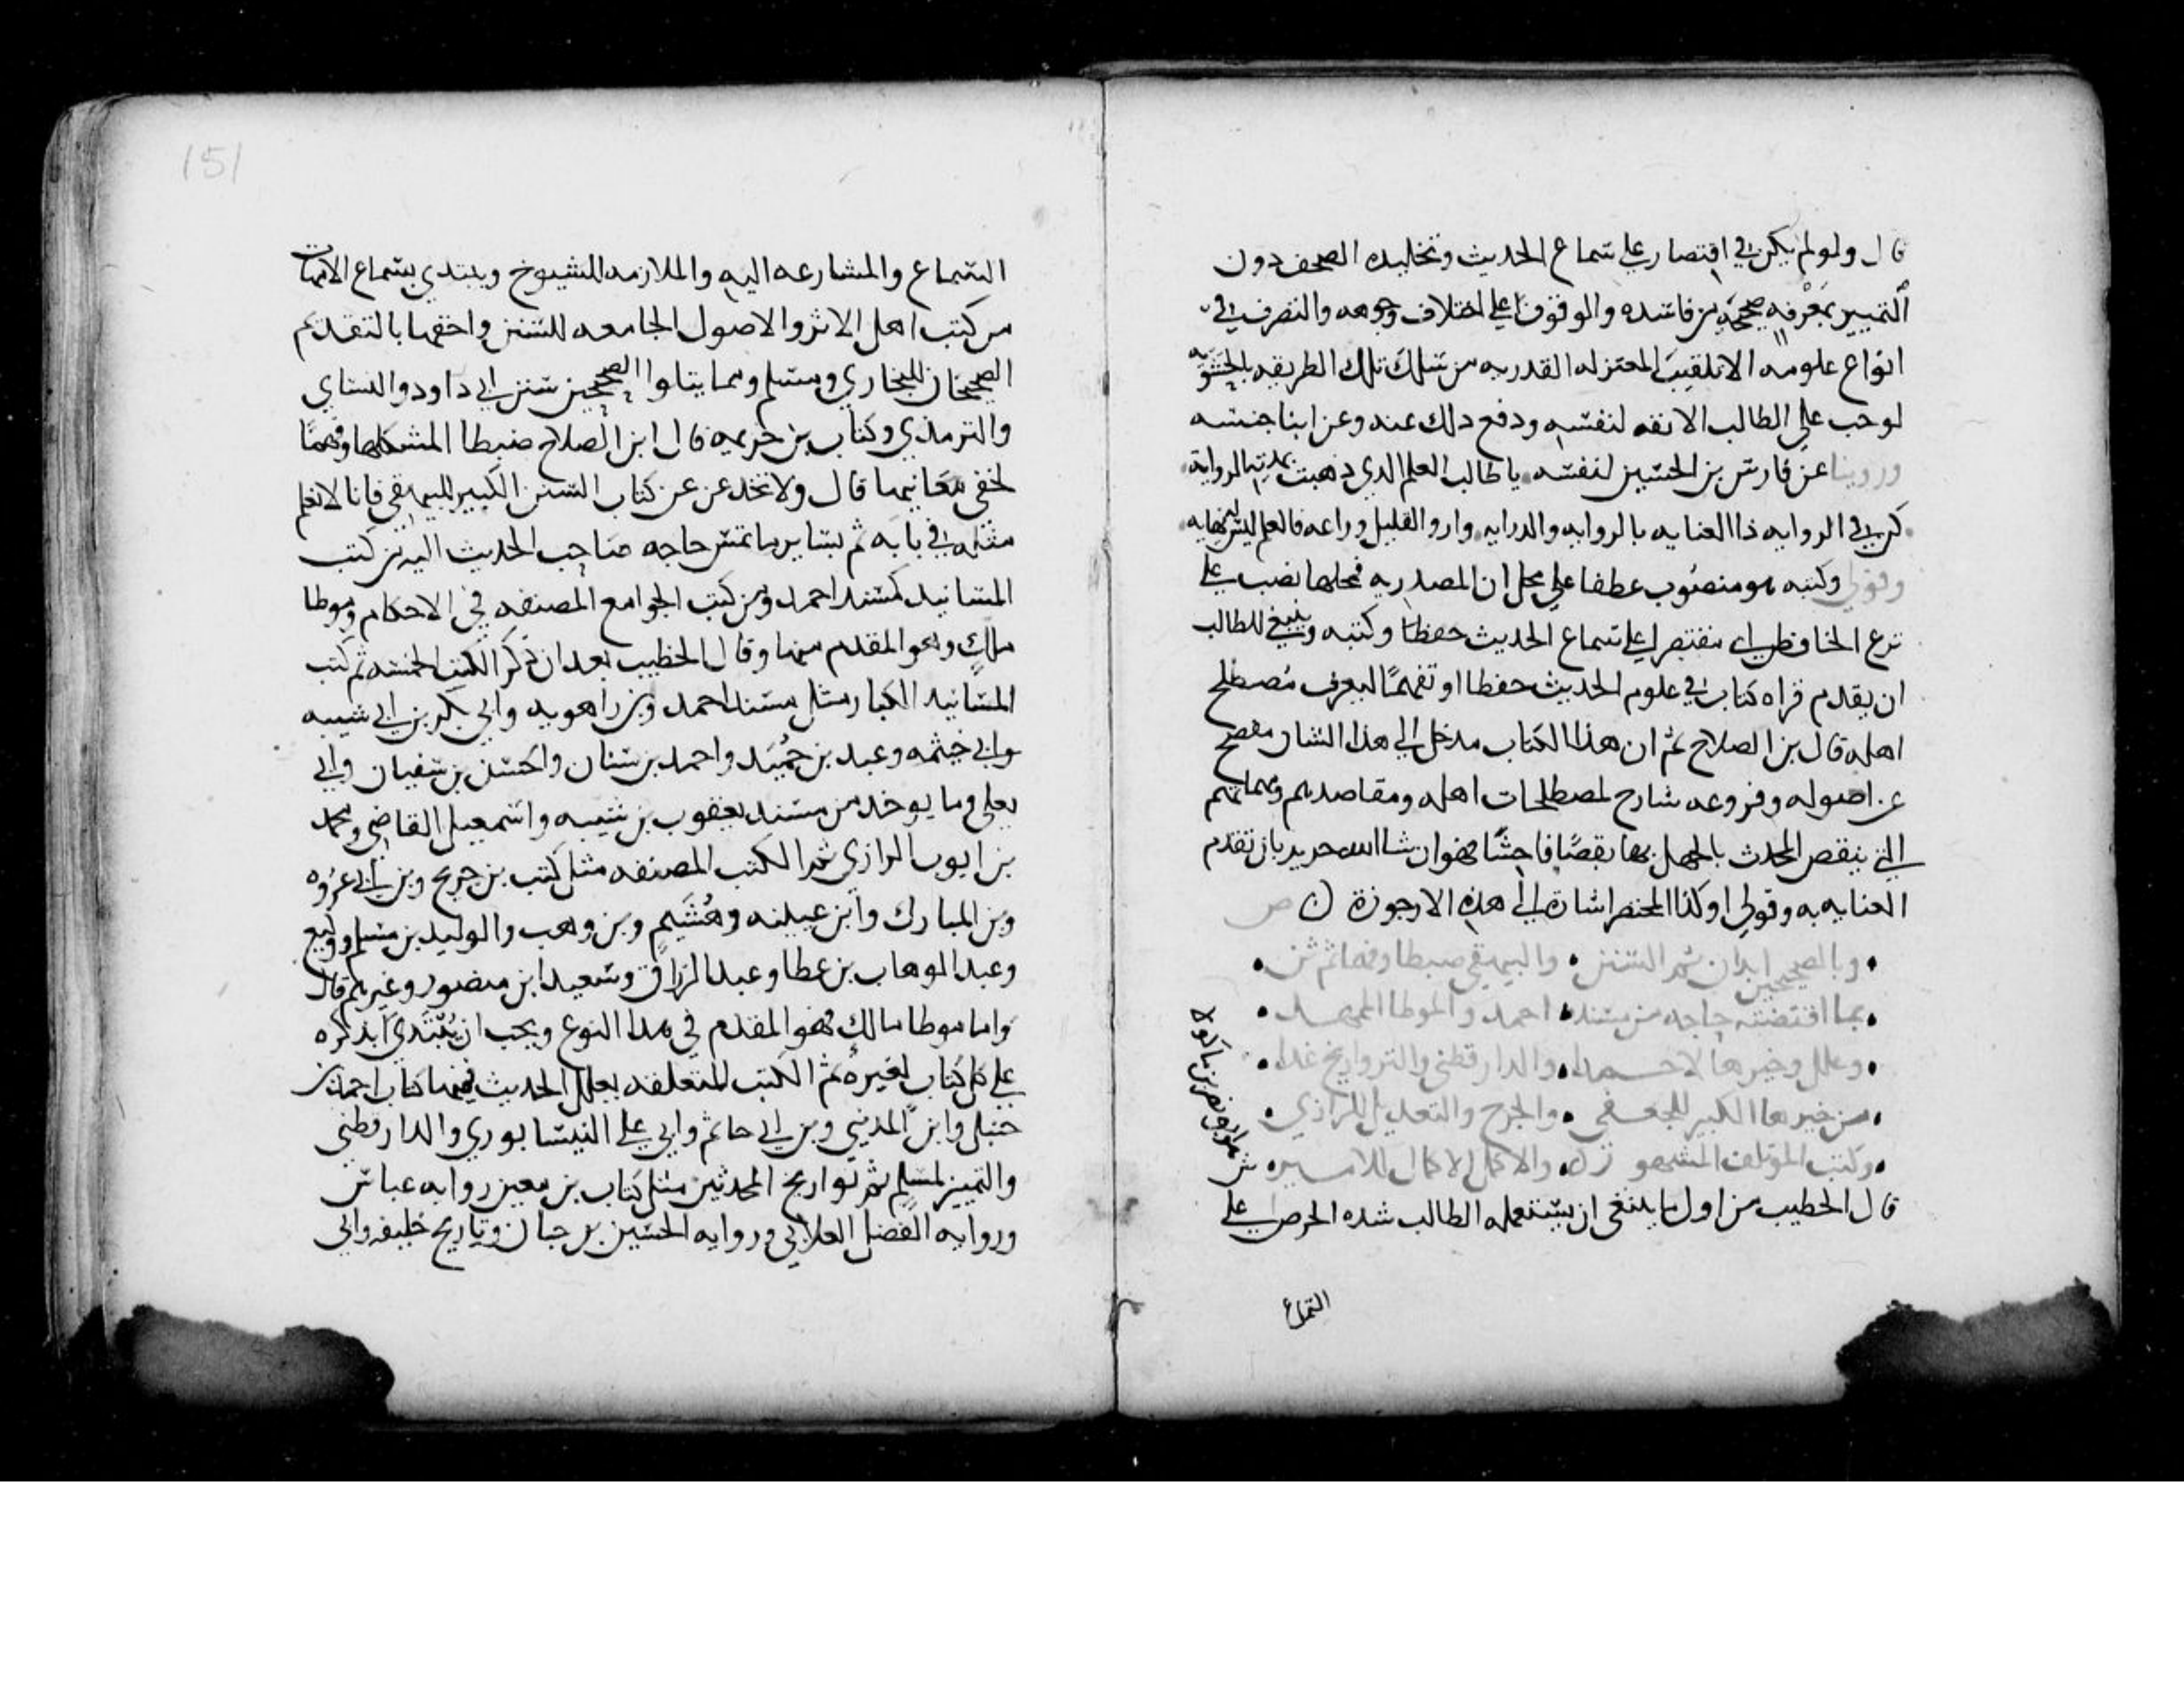 قال ولو لم يكن في اقتصار علي سماع الحديث وتخليده الصحف دون
التمييز بمعرفة صحيحه من فاسده والوقوف علي اختلاف وجوهه والتصرف في
انواع علومه الا تلقيب المعتزله القدريه من سلك تلك الطريقه بالحشويه
لوجب علي الطالب الانفه لنفسه ودفع ذلك عنه وعن ابنا جنسه
وروينا عن فارس بن الحسين لنفسه يا طالب العلم الذي ذهبت بمدته الروايه
كن في الروايه ذا العنايه بالروايه والدرايه وارو القليل وراعه فالعلم ليس له نهايه
وقولي وكتبه هو منصوب عطفا علي محل ان المصدريه فمحلها نصب علي
نزع الخافض اي مقتصرا علي سماع الحديث حفظا وكتبه وينبغي للطالب
ان يقدم قراه كتاب في علوم الحديث حفظا او تفهما ليعرف مصطلح
اهله قال بن الصلاح ثم ان هذا الكتاب مدخل الي هذا الشان مفصح
عن اصوله وفروعه شارح لمصطلحات اهله ومقاصدهم ومهماتهم
التي ينقص المحدث بالجهل بها نقصا فاحشا فهو ان شا الله جدير بان تقدم
العنايه به وقولي او كذا المختصر اشارة الي هذه الارجوزة ص
وبالصحيحين ابدان ثم السنن والبيهقي ضبطا وفهما ثم ثن
بما اقتضته حاجه من مسند احمد والموطا الممهد
وعلل وخيرها لاحمدا والدارقطني والتواريخ غدا
من خيرها الكبير للجعفي والجرح والتعديل للرازي
وكتب المؤتلف المشهور والاكمل الاكمال للامير ش
هو ابو نصر بن ماكولا
قال الخطيب من اول ما ينبغي ان يستعمله الطالب شده الحرص علي
السماع
151
السماع والمسارعه اليه والملازمه للشيوخ ويبتدي بسماع الامهات
من كتب اهل الاثر والاصول الجامعه للسنن واحقها بالتقديم
الصحيحان للبخاري ومسلم ومما يتلوا الصحيحين سنن ابي داود والنساي
والترمذي وكتاب بن خزيمه قال ابن الصلاح ضبطا لمشكلها وفهما
لخفي معانيها قال ولا تخدعن عن كتاب السنن الكبير للبيهقي فانا لا نعلم
مثله في بابه ثم بساير ما تمس حاجه صاحب الحديث اليه من كتب
المسانيد كمسند احمد ومن كتب الجوامع المصنفه في الاحكام وموطا
ملك وهو المقدم منها وقال الخطيب بعد ان ذكر الكتب الخمسه ثم كتب
المسانيد الكبار مثل مسند احمد وبن راهويه وابي بكر بن ابي شيبه
وابي خيثمه وعبد بن حميد واحمد بن سنان والحسن بن سفيان وابي
يعلي وما يوخذ من مسند يعقوب بن شيبه واسمعيل القاضي ومحمد
بن ايوب الرازي ثم الكتب المصنفه مثل كتب بن جريج وبن ابي عروه
وبن المبارك وابن عيينه وهشيم وبن وهب والوليد بن مسلم ووكيع
وعبد الوهاب بن عطا وعبد الرزاق وسعيد ابن منصور وغيرهم قال
واما موطا مالك فهو المقدم في هذا النوع ويجب ان يبتدي بذكره
علي كل كتاب لغيره ثم الكتب المتعلقه بعلل الحديث فمنها كتاب احمد بن
حنبل وابن المديني وبن ابي حاتم وابي علي النيسابوري والدارقطني
والتمييز لمسلم ثم تواريخ المحدثين مثل كتاب بن معين روايه عباس
وروايه المفضل الغلابي وروايه الحسين بن حبان وتاريخ خليفه وابي